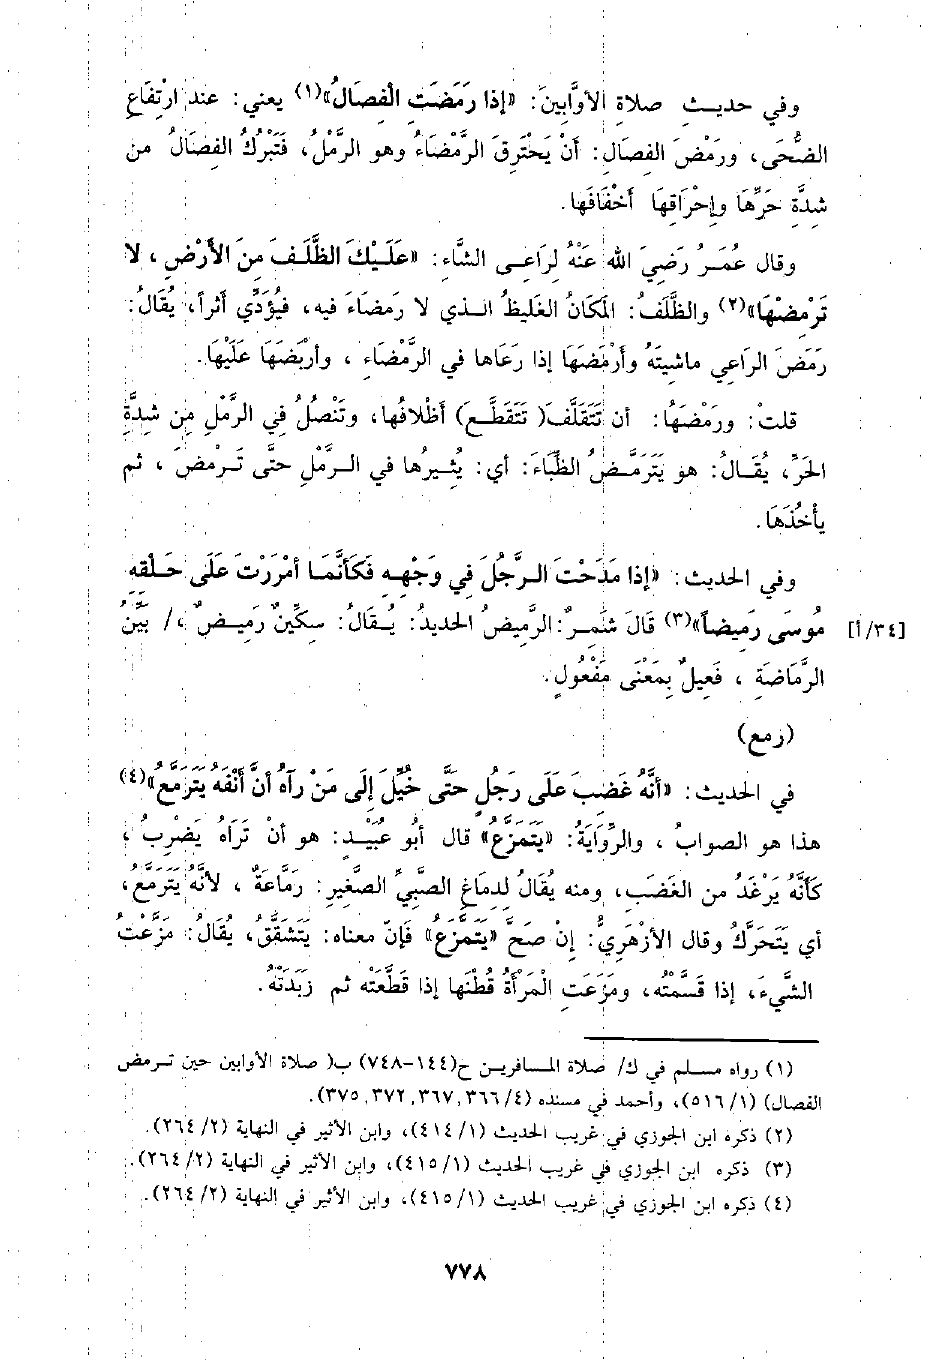 وفي حديث صلاة الأوَّابينَ: «إذا رَمَضَتِ الْفِصَالُ»(١) يعني: عند ارْتِفَاعِ
الضُّحَى، ورَمْضَ الفِصَالِ: أنْ يَحْتَرِقَ الرَّمْضَاءُ وهو الرَّمْلُ، فَتَبْرُكُ الفِصَالُ من
شدَّة حَرِّهَا وإحْرَاقِهَا أخْفَافَهَا.
وقال عُمَرُ رَضِيَ الله عَنْهُ لِرَاعِي الشَّاءِ: «عَلَيْكَ الظَّلَفَ مِنَ الأَرْضِ، لا
تَرْمِضْهَا»(٢) والظَّلَفُ: المَكَانُ الغَلِيظُ الـذي لا رَمَضَاءَ فيه، فَيُؤَدِّي أثراً، يُقَالُ:
رَمَضَ الرَاعِي ماشيتَهُ وأرْمَضَهَا إذا رَعَاها في الرَّمْضَاءِ، وأرْبَضَهَا عَلَيْهَا.
قلت: ورَمْضِهَا: أن تَتَقَلَّفَ( تَتَقَطَّعَ) أظْلافُها، وتَنْصُلُ فِي الرَّمْلِ مِن شِدَّةِ
الحَرِّ، يُقَـالُ: هو يَتَرَمَّضُ الظِّبَاءَ: أي: يُثيرُها في الـرَّمْلِ حتَّى تَرْمضَ، ثم
يأخُذَهَا.
وفي الحديث: «إذا مَدَحْتَ الـرَّجُلَ فِي وَجْهِهِ فَكَأنَّمَا أمْرَرْتَ عَلَى حَلْقِهِ
مُوسَى رَمِيضاً»(٣) قَالَ شَمِرٌ: الرَّميضُ الحديدُ: يُقالُ: سكِّينٌ رَمِيضٌ، / بَيِّنُ [٣٤/أ]
الرَّمَاضَةِ، فَعِيلٌ بِمَعْنَى مَفْعُولٍ.
(رمع)
في الحديث: «أنَّهُ غَضِبَ عَلَى رَجُلٍ حَتَّى خُيِّلَ إلَى مَنْ رَآهُ أنَّ أنْفَهُ يَتَرَمَّعُ»(٤)
هذا هو الصوابُ، والرِّوَايَةُ: «يَتَمَزَّعُ» قال أبُو عُبَيْدٍ: هو أنْ تَرَاهُ يَضْرِبُ،
كَأنَّهُ يَرْعَدُ من الغَضَبِ، ومنه يُقَالُ لِدِمَاغِ الصَّبِيِّ الصَّغِيرِ: رَمَّاعَةٌ، لأنَّهُ يَتَرَمَّعُ،
أي يَتَحَرَّكُ وقال الأزْهَرِيُّ: إنْ صَحَّ «يتَمَزَّعُ» فَإنّ معناه: يَتَشَقَّقُ، يُقَالُ: مَزَّعْتُ
الشَّيءَ، إذا قَسَّمْتُه، ومَزَعَتِ الْمَرْأةُ قُطْنَها إذا قَطَّعَتْه ثم زَبَدَتْهُ.
(١) رواه مسلم في ك/ صلاة المسافرين ح(١٤٤-٧٤٨) ب( صلاة الأوابين حين ترمض
الفصال) (٥١٦/١)، وأحمد في مسنده (٣٦٦/٤، ٣٦٧، ٣٧٢، ٣٧٥).
(٢) ذكره ابن الجوزي في غريب الحديث (٤١٤/١)، وابن الأثير في النهاية (٢٦٤/٢).
(٣) ذكره ابن الجوزي في غريب الحديث (٤١٥/١)، وابن الأثير في النهاية (٢٦٤/٢).
(٤) ذكره ابن الجوزي في غريب الحديث (٤١٥/١)، وابن الأثير في النهاية (٢٦٤/٢).
٧٧٨